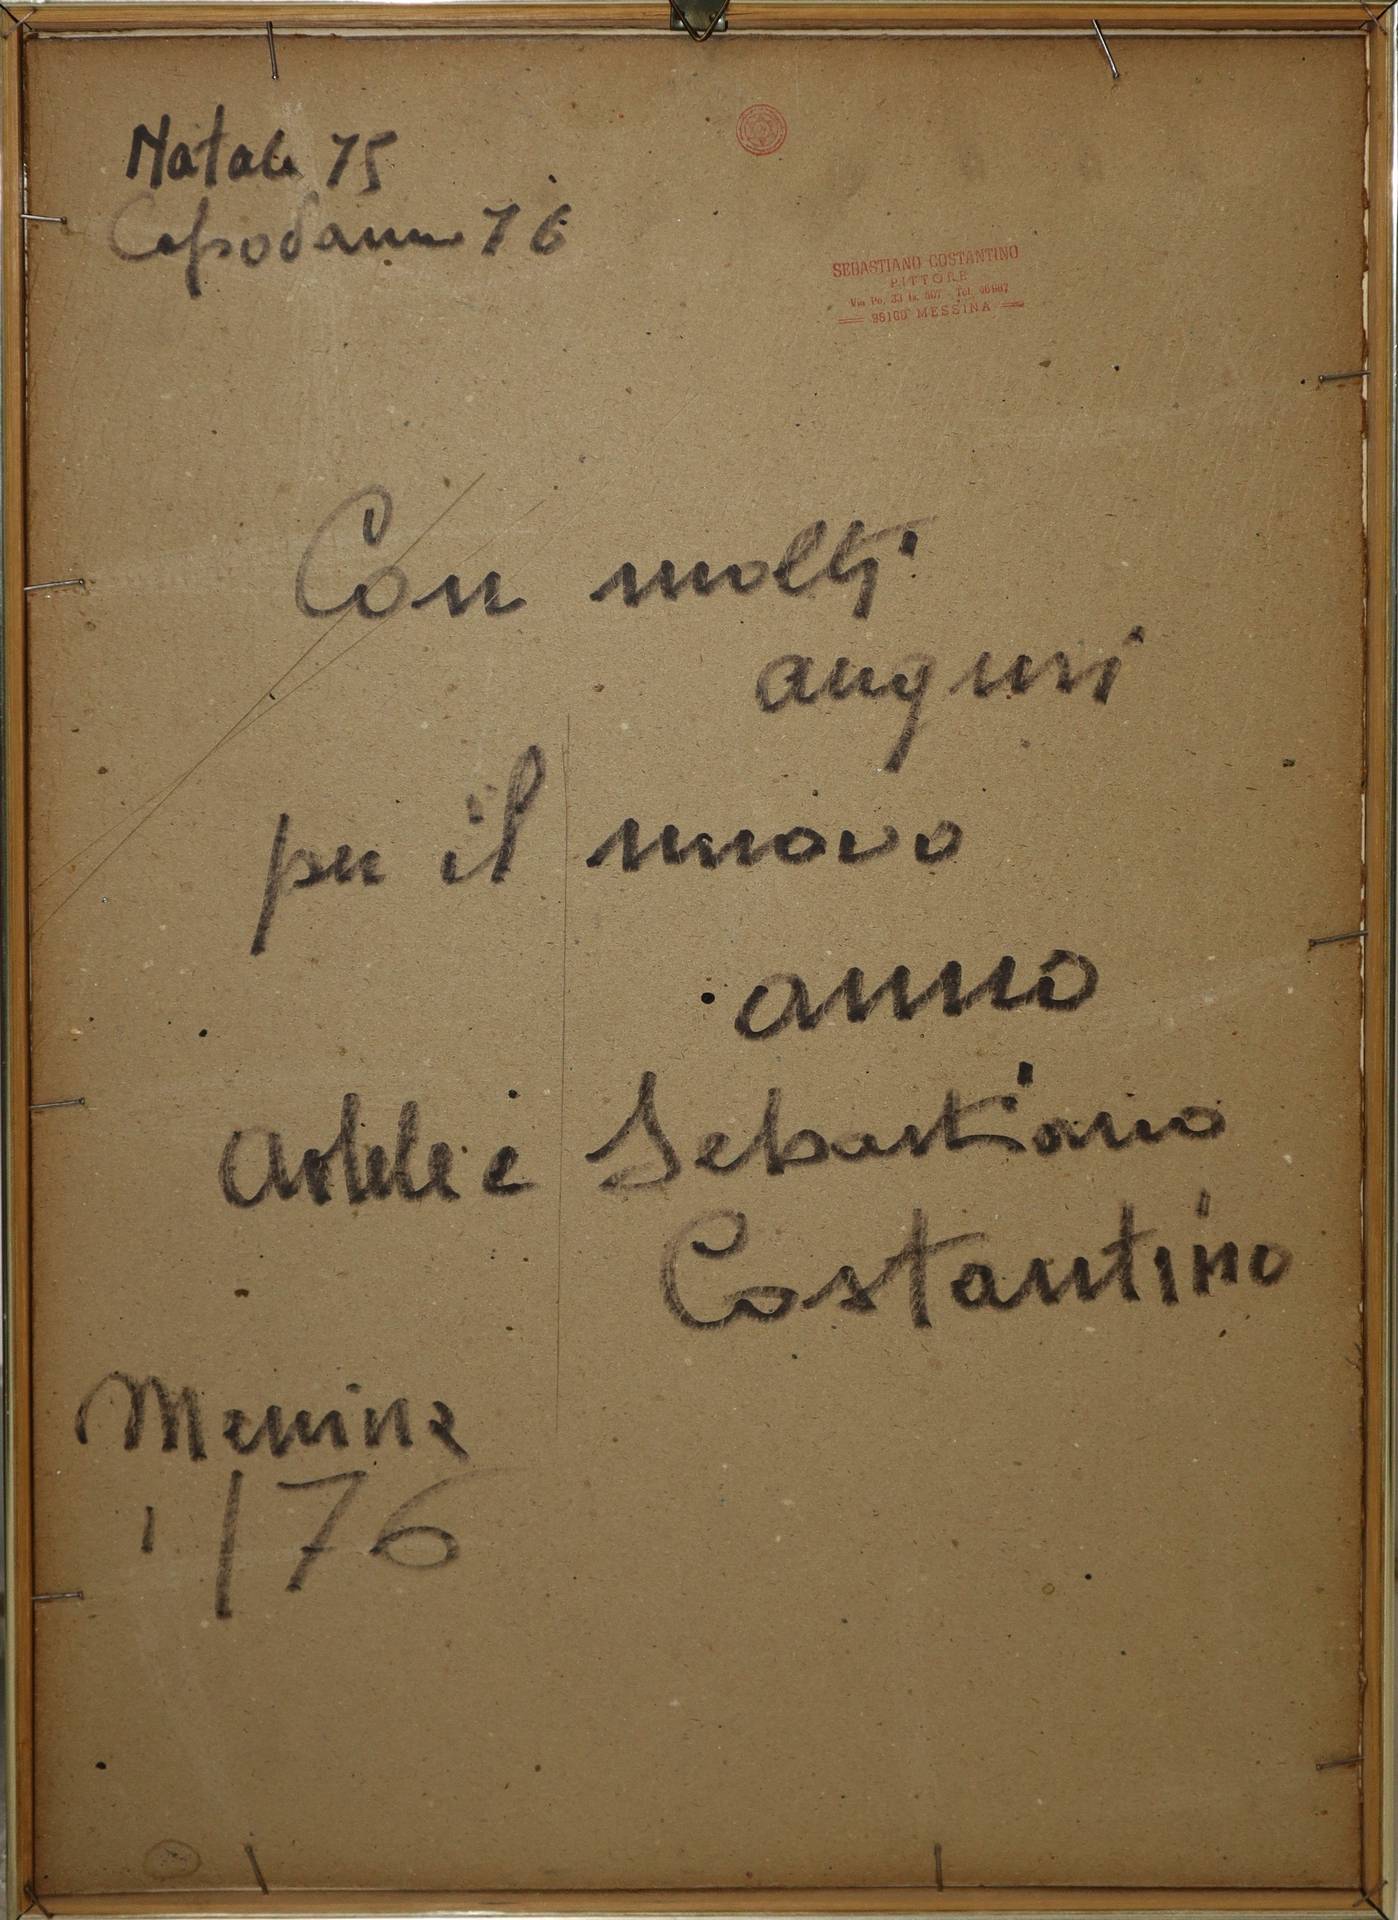 Natale 75
Capodanno 76
SEBASTIANO COSTANTINO
PITTORE
Via Po, 33 is. 507 Tel. 46987
98100 MESSINA
Con molti
auguri
per il nuovo
anno
Adele e Sebastiano
Costantino
Messina
1/76